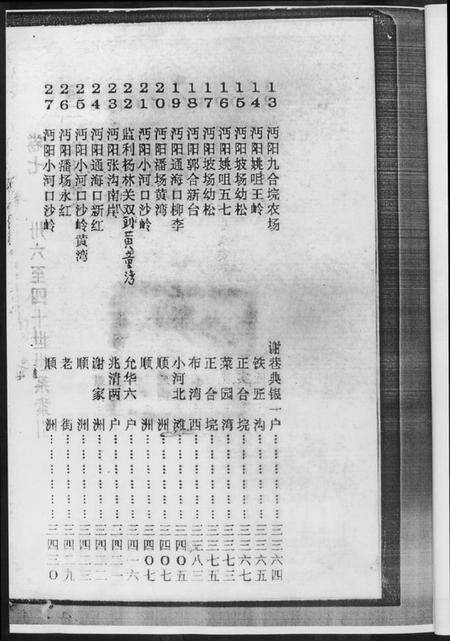 13 沔阳九合垸农场 谢巷典银一户……三三六四
14 沔阳姚咀王岭 铁匠沟……三三六五
15 沔阳坡场幼松 正合垸……三三六七
16 沔阳姚咀五七 菜园湾……三三七三
17 沔阳坡场幼松 正合垸……
18 沔阳郭合新台 布湾西……三三八三
19 沔阳通海口柳李 小河北滩……三四〇五
20 沔阳潘场黄湾 顺洲……三四〇七
21 沔阳小河口沙岭 顺洲……三四〇七
22 监利杨林关双剅黄董湾 允华六户……三四一六
23 沔阳张沟南岸 兆清两户……三四二一
24 沔阳通海口新红 谢家洲……三四二二
25 沔阳小河口沙岭黄湾 顺洲……三四二三
26 沔阳潘场永红 老街……三四二九
27 沔阳小河口沙岭 顺洲……三四三〇
卷七 卅六至四十世